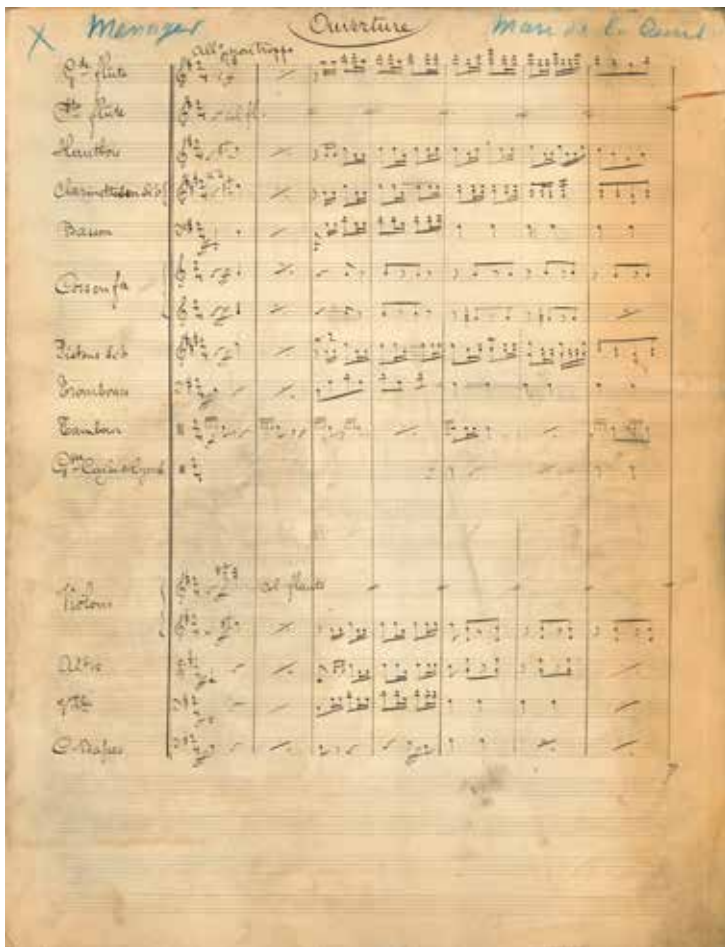 X Menager Ouverture Mari de la
All° non troppo
Gde flûte
Pte flûte col fl.
Hautbois
Clarinettes en si b
Basson
Cors en fa
Pistons si b
Trombones
Tambour
Gse Caisse et Cymb
Violons col flauto
Altos
Vlles
C. Basses
7